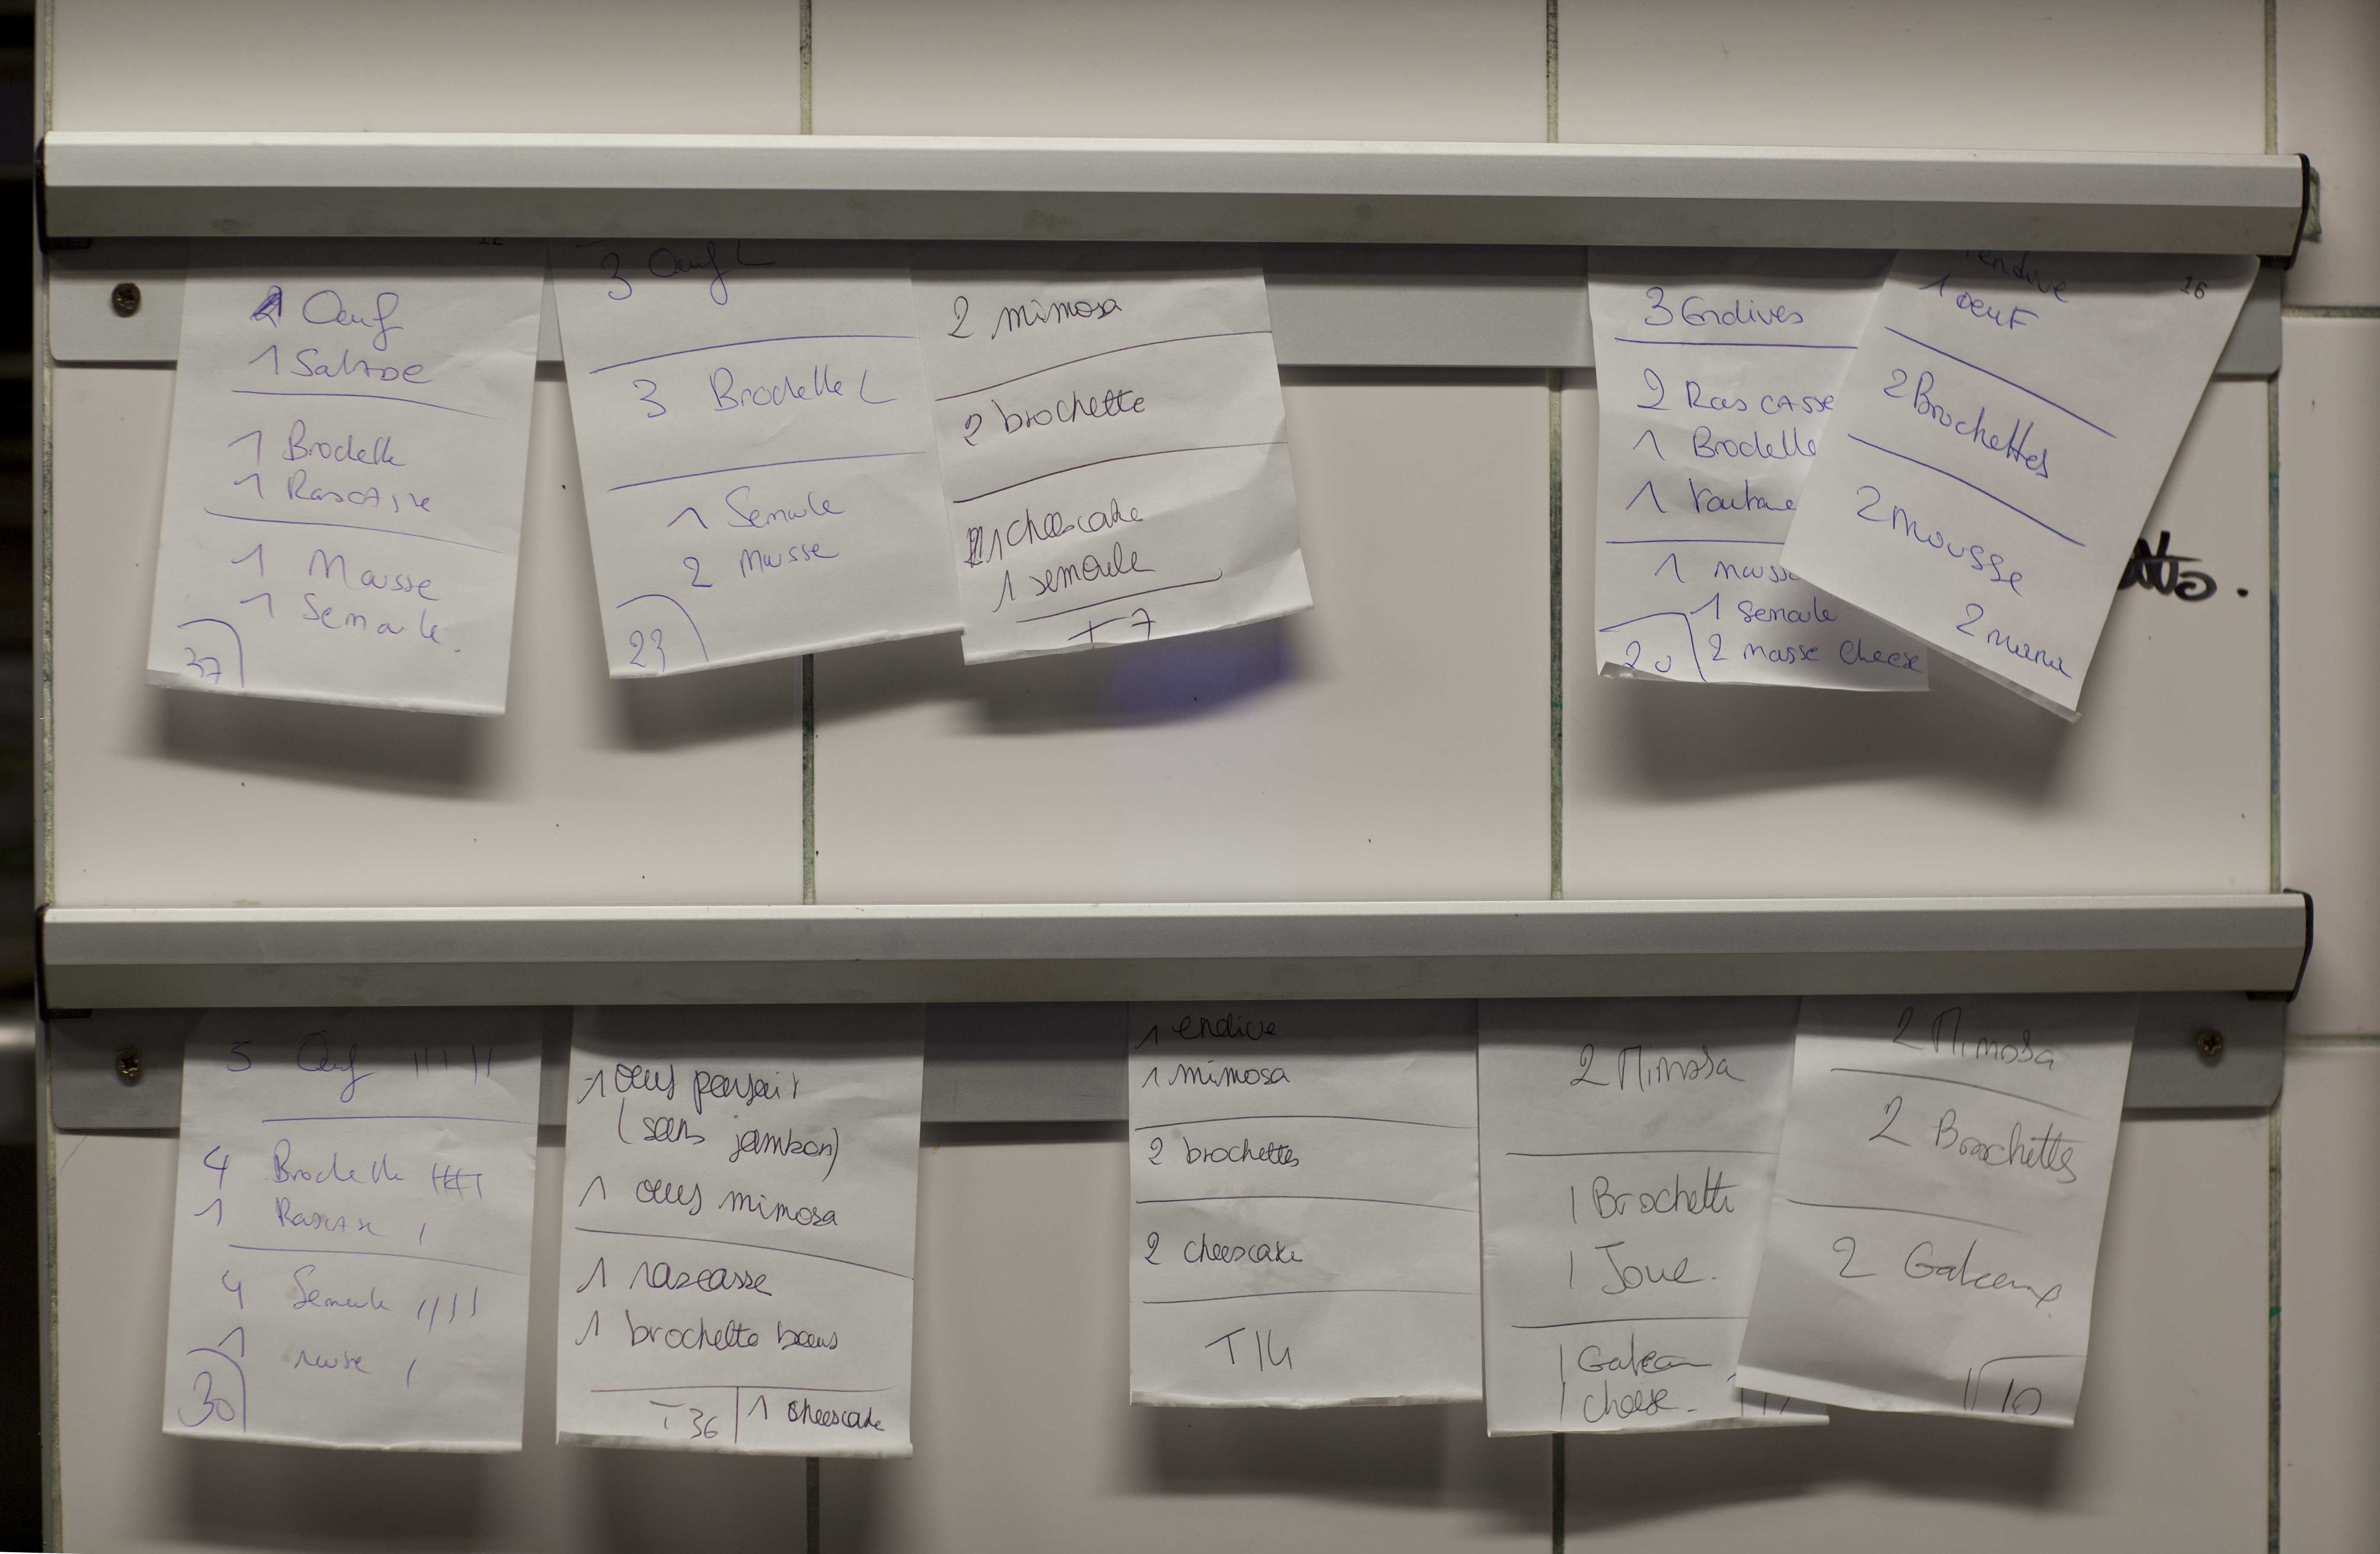 Oeuf
1 Salade
1 Brochette
1 Rascasse
1 Mousse
1 Semoule.
37
3 Oeuf
3 Brochette
1 Semoule
2 Mousse
23
2 mimosa
2 brochette
1 cheescake
1 semoule
T7
3 Endives
2 Rascasse
1 Brochette
1
1 mousse
1 Semoule
2 masse Cheese
20
endive
16
1 oeuf
2 Brochettes
2 mousse
2
5 Oeuf
4 Brochette
1 Rascasse
4 Semoule
1
30
1 oeuf parfait
(sans jambon)
1 oeuf mimosa
1 rascasse
1 brochette boeuf
T36
1 cheescake
1 endive
1 mimosa
2 brochettes
2 cheescake
T14
2 Mimosa
1 Brochette
1 Joue.
1 Gateau
1 cheese.
2 Mimosa
2 Brochettes
2 Gateaux
10